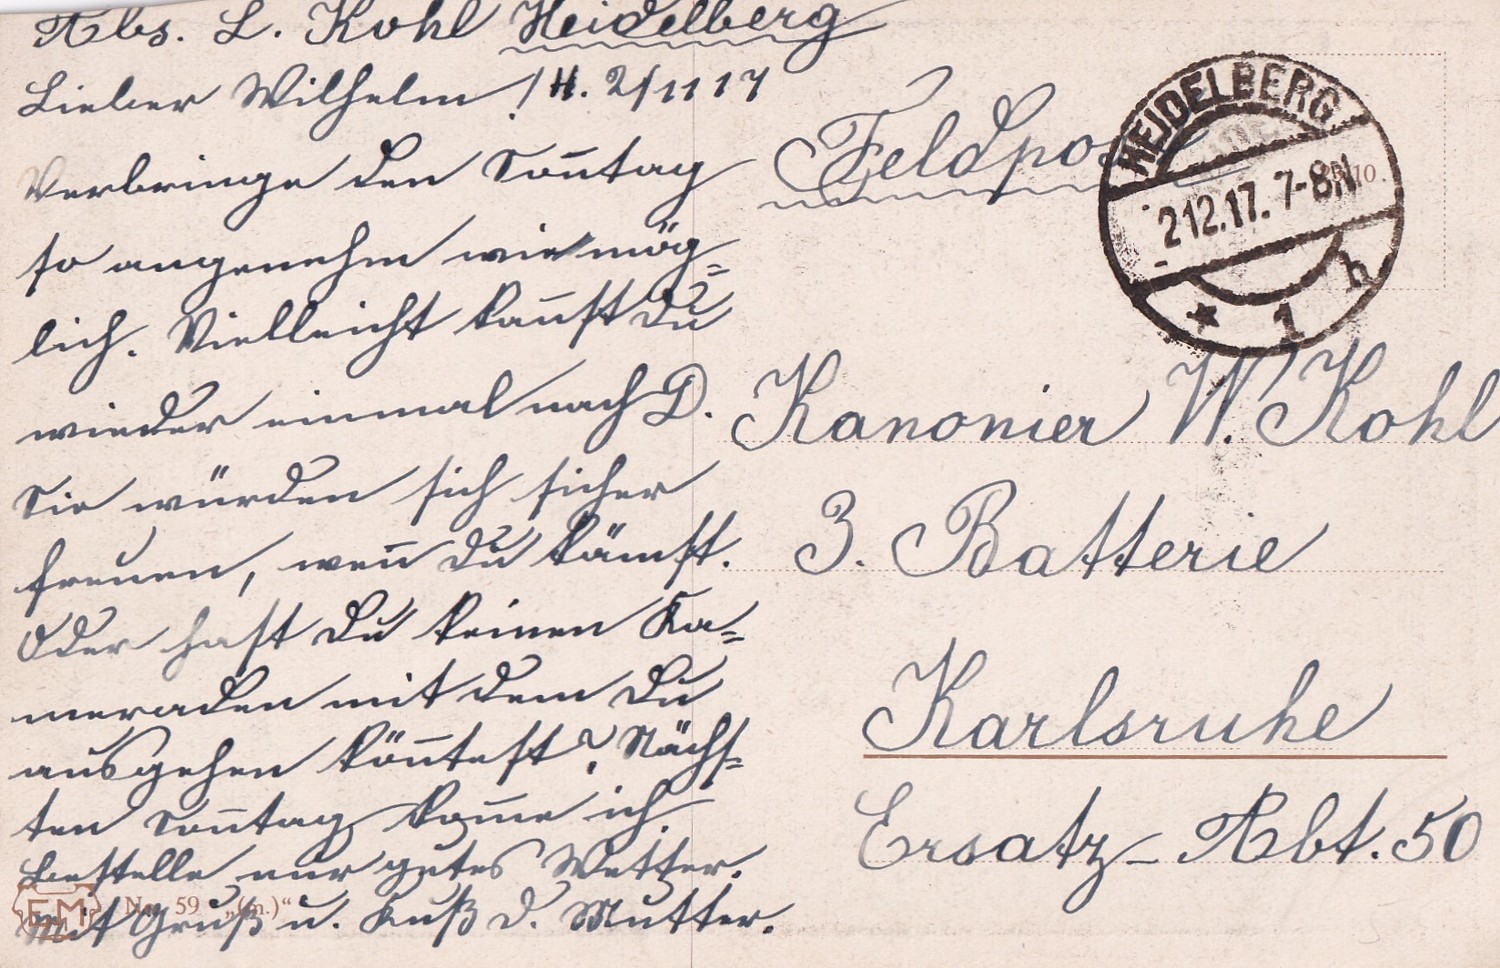 Abs. L. Kohl Heidelberg
Lieber Wilhelm! H. 2/11 17
Verbringe den Son̄tag
so angenehm wie mög=
lich. Vielleicht kan̄st Du
wieder einmal nach D.
Sie würden sich sicher
freuen, wen̄ Du kämst.
Oder hast Du keinen Ka=
meraden mit dem Du
ausgehen kön̄test? Nächs=
ten Son̄tag kom̄e ich.
Bestelle nur gutes Wetter.
Mit Gruß u. Kuß d. Mutter.
FM No. 59 „(m.)“
Feldpost
HEIDELBERG
2.12.17. 7-8N
* 1 h
Kanonier W. Kohl
3. Batterie
Karlsruhe
Ersatz-Abt. 50